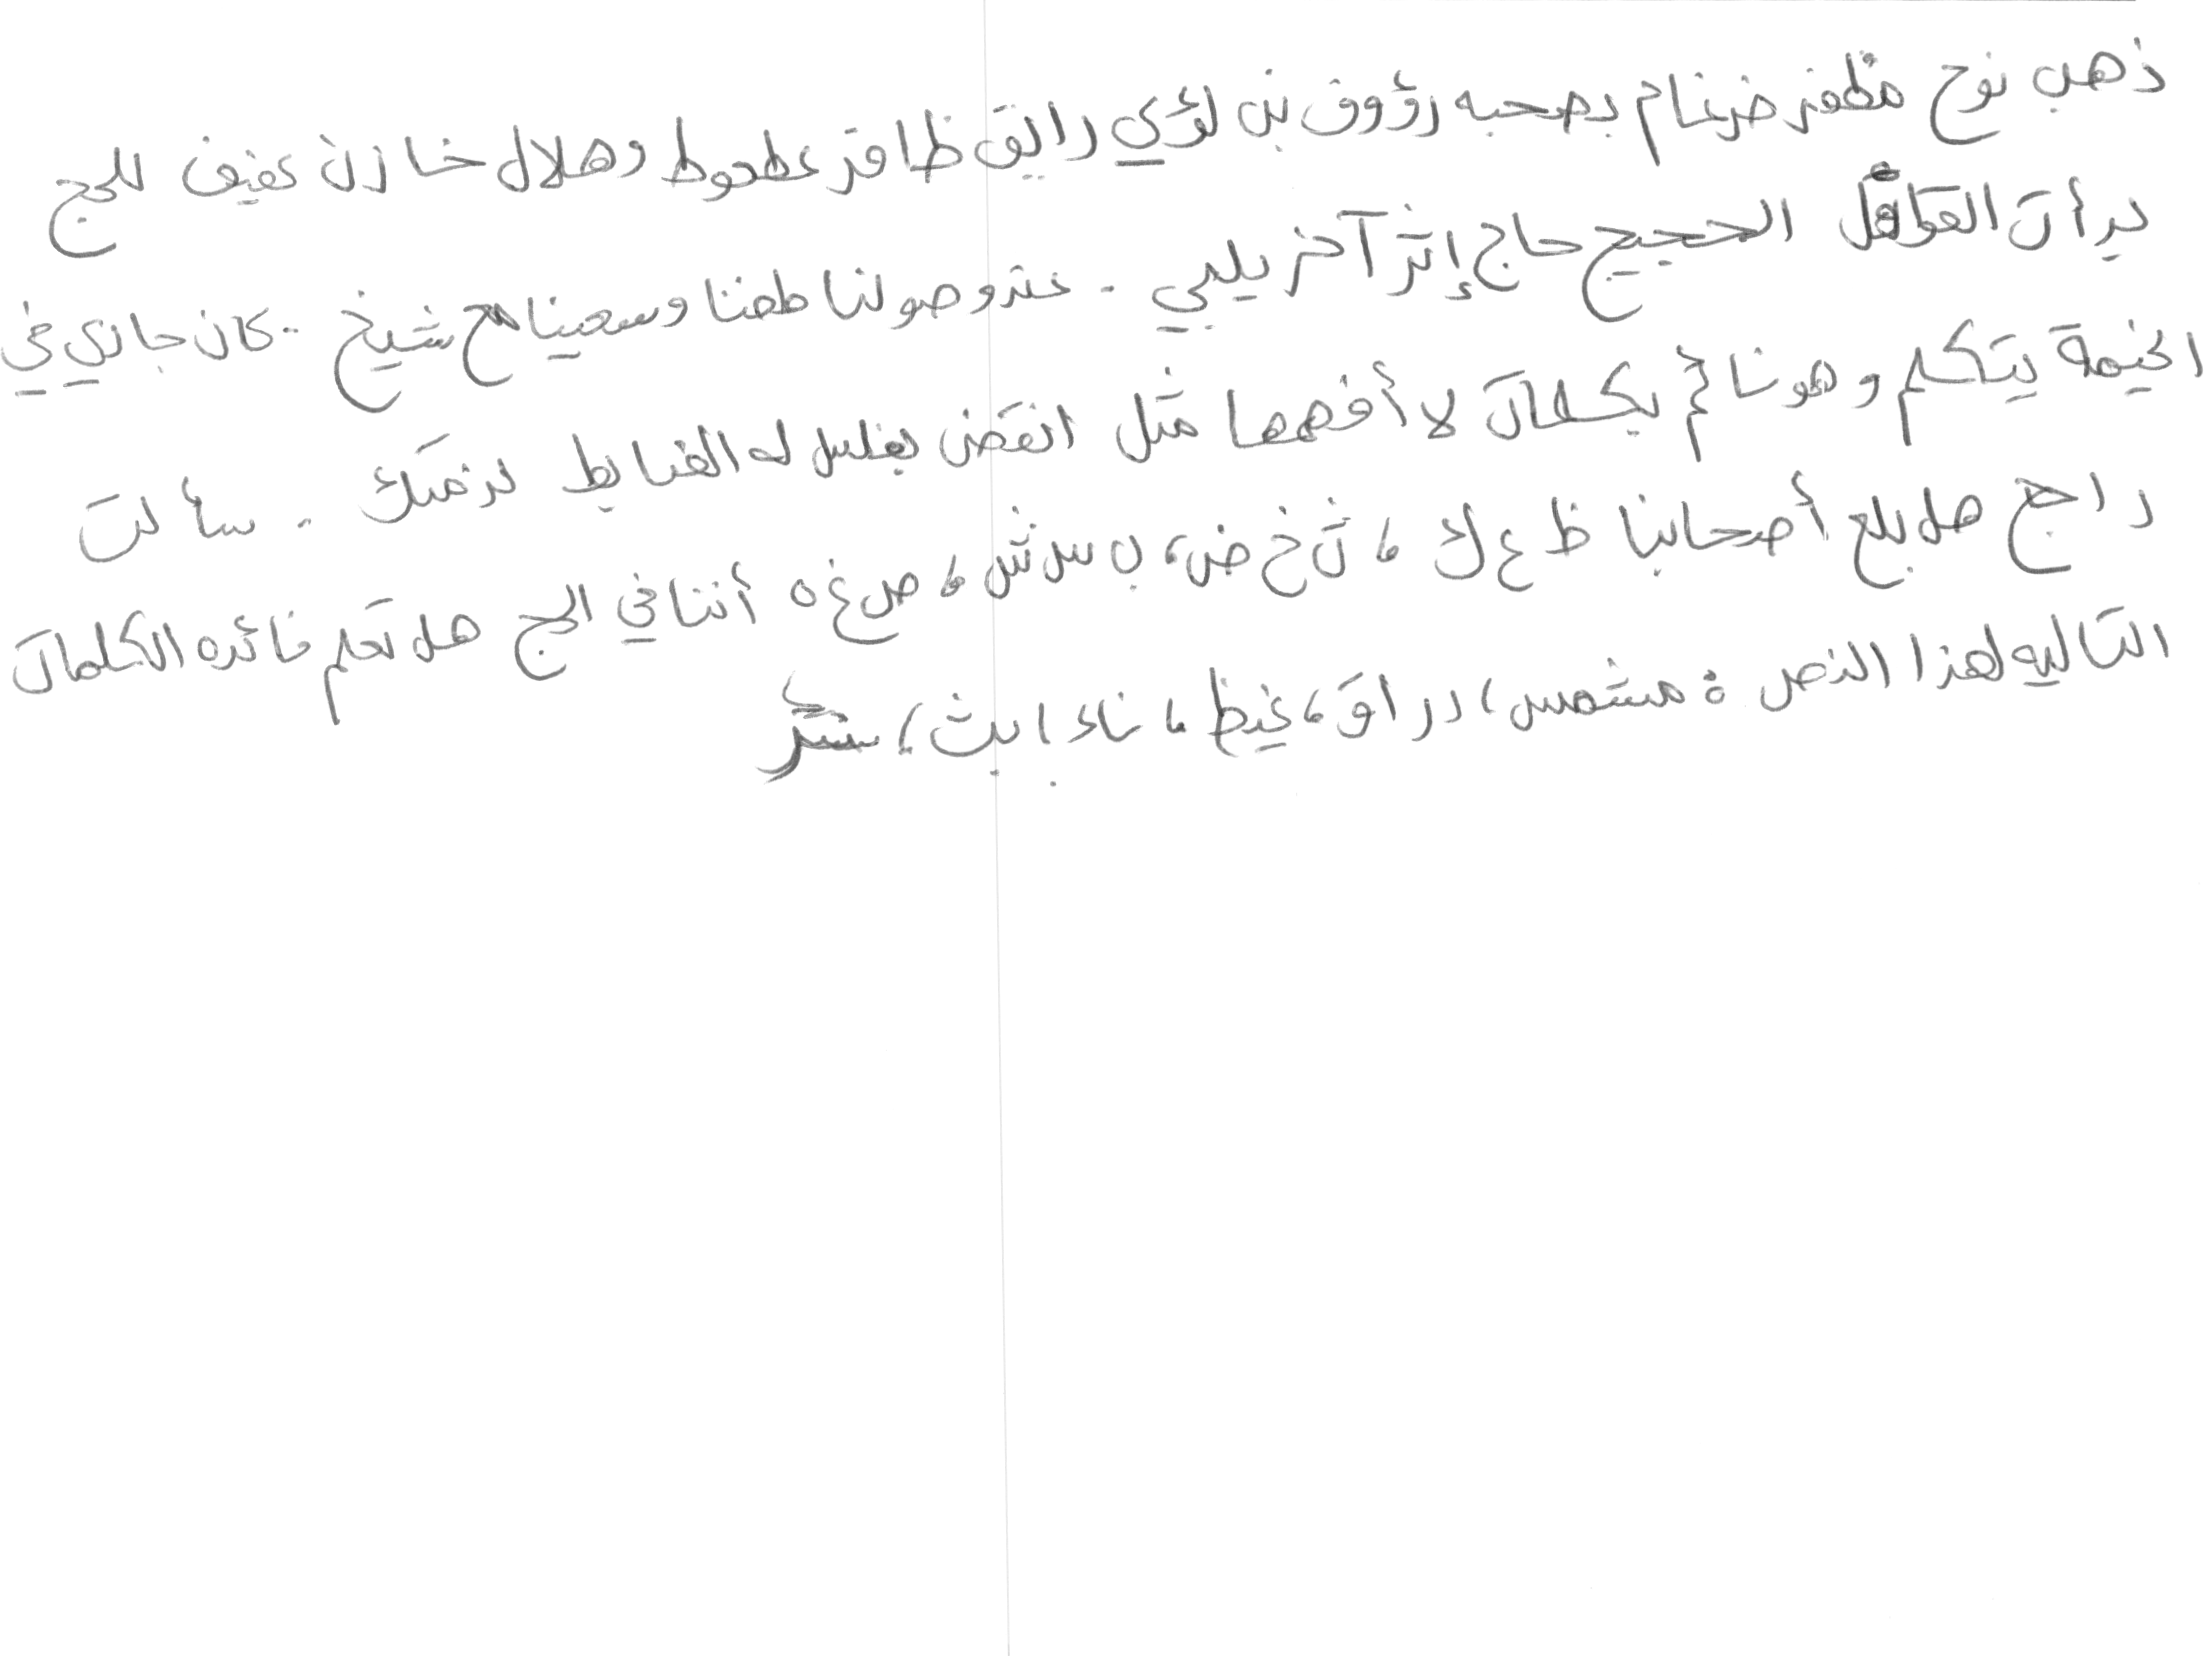 ذهب نوح مظفر ضرغام بصحبه رؤوف بن لؤي رايق ظافر عطعوط وهلال خازن عفيف للحج
بدأت القوافل الحجيج حاج إثر آخر يلبي . عند وصولنا طفنا وسعينا مع شيخ . كان جاري في
الخيمة يتكلم وهو نائم بكلمات لا أفهمها مثل انقض بغلس له الغيابط لزمتك . سألت
راجح هل بلغ أصحابنا ظ ع ك ، ث خ ض ، ب س ش ، ص غ ه أننا في الحج هل تعلم فائده الكلمات
التاليه لهذا النص : مشمس ، دراق ، غيظ ، ناء ، ابث ،